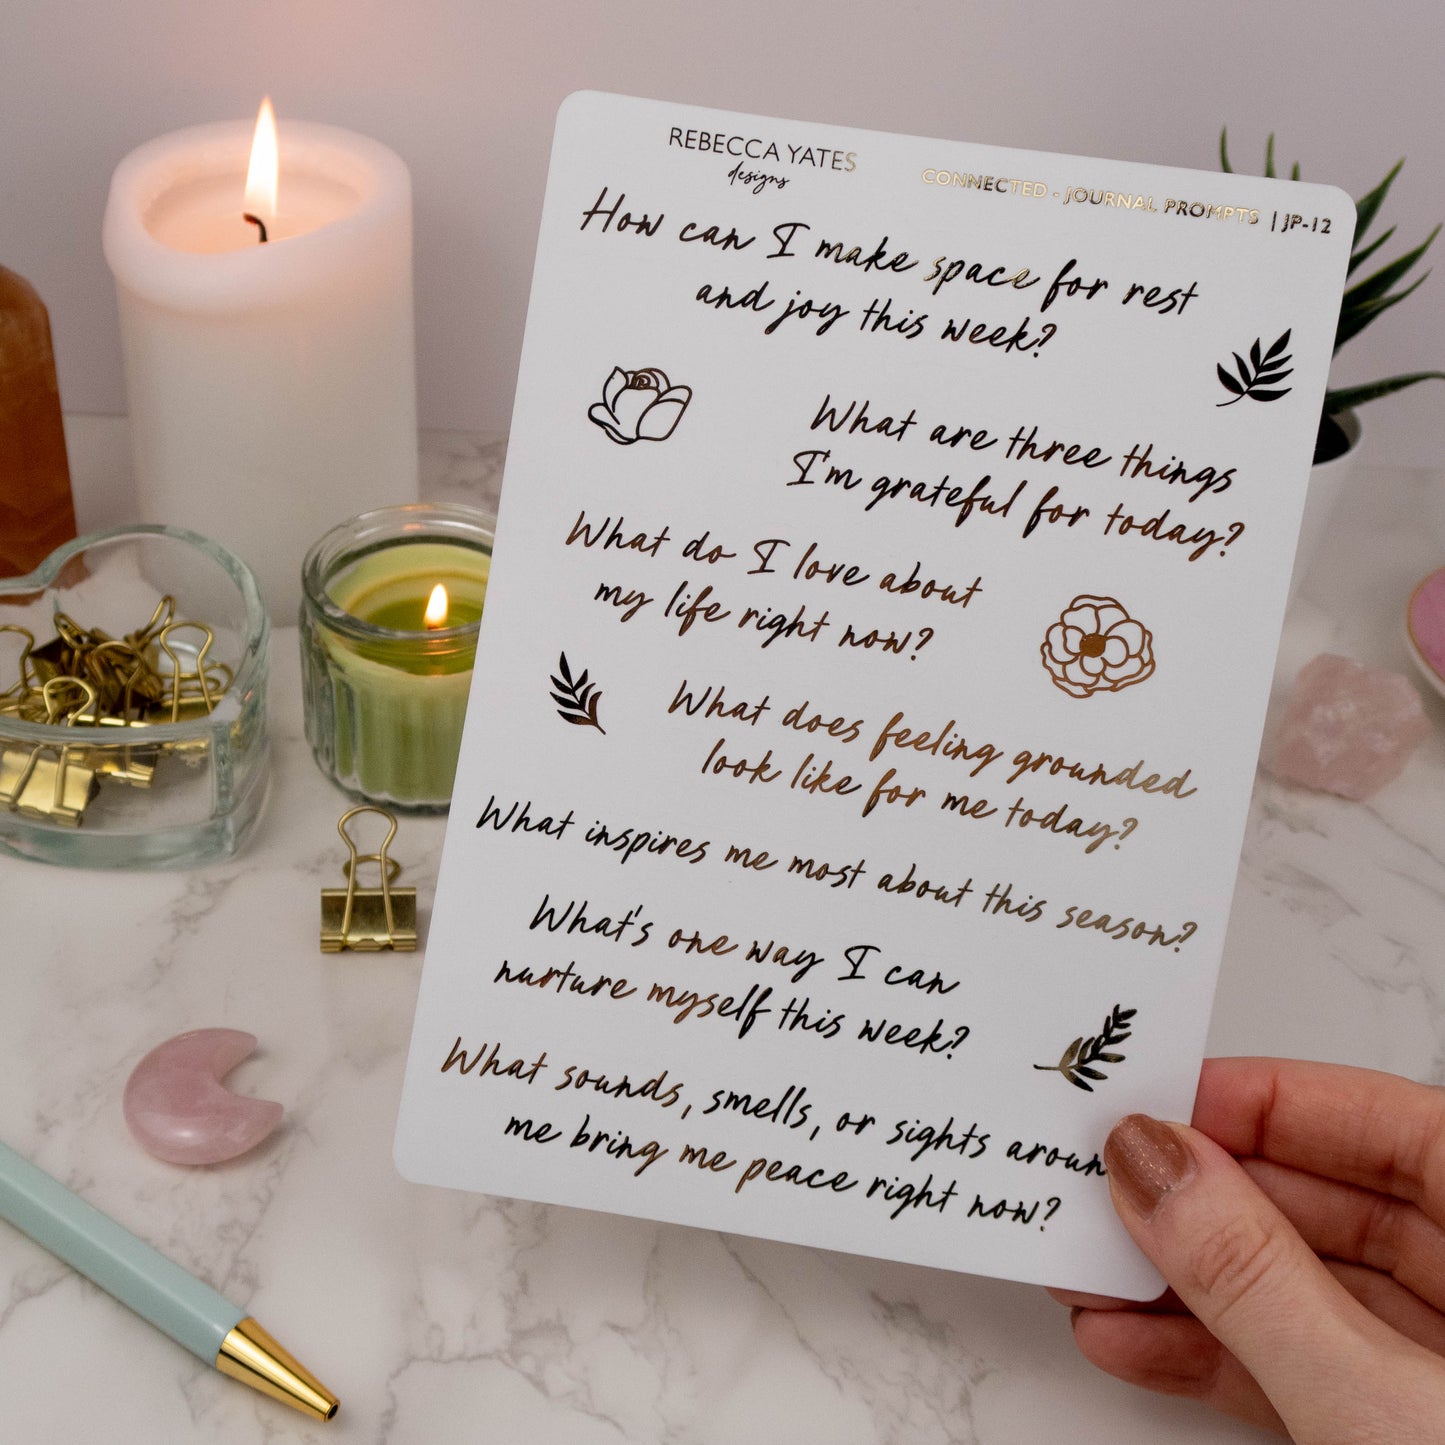 REBECCA YATES
designs
CONNECTED - JOURNAL PROMPTS | JP-12
How can I make space for rest
and joy this week?
What are three things
I'm grateful for today?
What do I love about
my life right now?
What does feeling grounded
look like for me today?
What inspires me most about this season?
What's one way I can
nurture myself this week?
What sounds, smells, or sights aroun
me bring me peace right now?